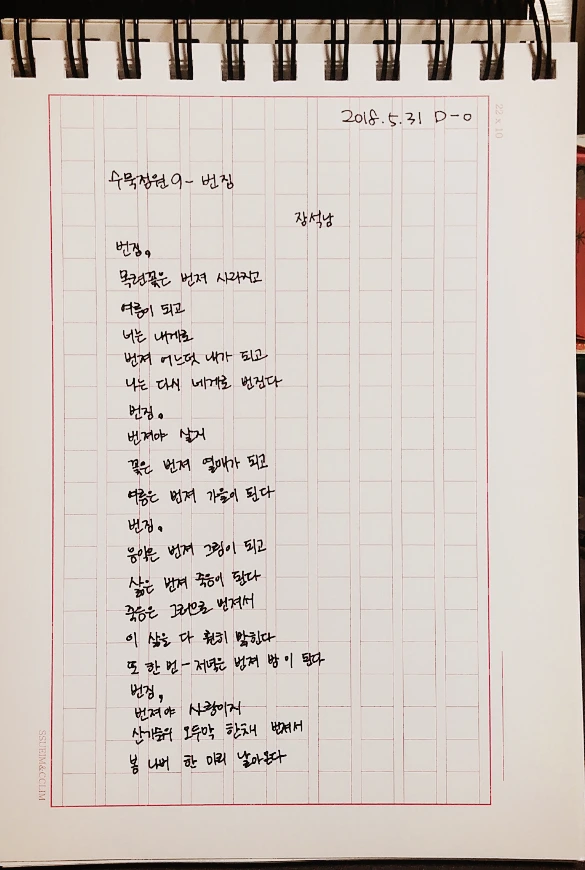 2018.5.31 D-0
23 x 10
수묵정원9- 번짐
장석남
번짐,
목련꽃은 번져 사라지고
여름이 되고
너는 내게로
번져 어느덧 내가 되고
나는 다시 네게로 번진다
번짐,
번져야 살지
꽃은 번져 열매가 되고
여름은 번져 가을이 된다
번짐,
음악은 번져 그림이 되고
삶은 번져 죽음이 된다
죽음은 그러므로 번져서
이 삶을 다 환히 밝힌다
또 한 번 - 저녁은 번져 밤이 된다
번짐,
번져야 사랑이지
산기슭의 오두막 한채 번져서
봄 나비 한 마리 날아온다